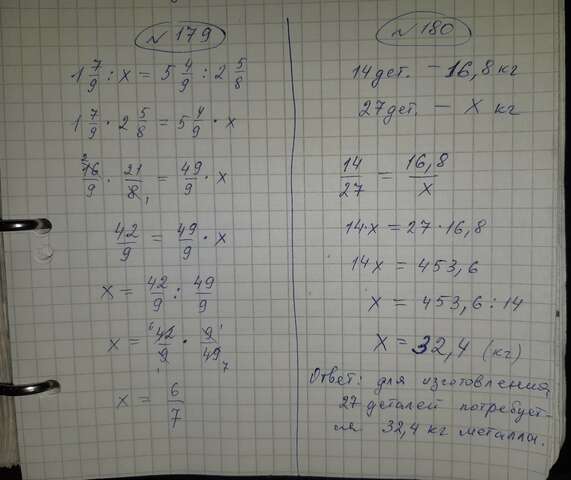 №179
1 7/9 : x = 5 4/9 : 2 5/8
1 7/9 · 2 5/8 = 5 4/9 · x
16/9 · 21/8 = 49/9 · x
42/9 = 49/9 · x
x = 42/9 : 49/9
x = 42/9 · 9/49
x = 6/7
№180
14 дет. – 16,8 кг
27 дет. – x кг
14/27 = 16,8/x
14·x = 27·16,8
14x = 453,6
x = 453,6 : 14
x = 32,4 (кг)
Ответ: для изготовления
27 деталей потребует-
ся 32,4 кг металла.